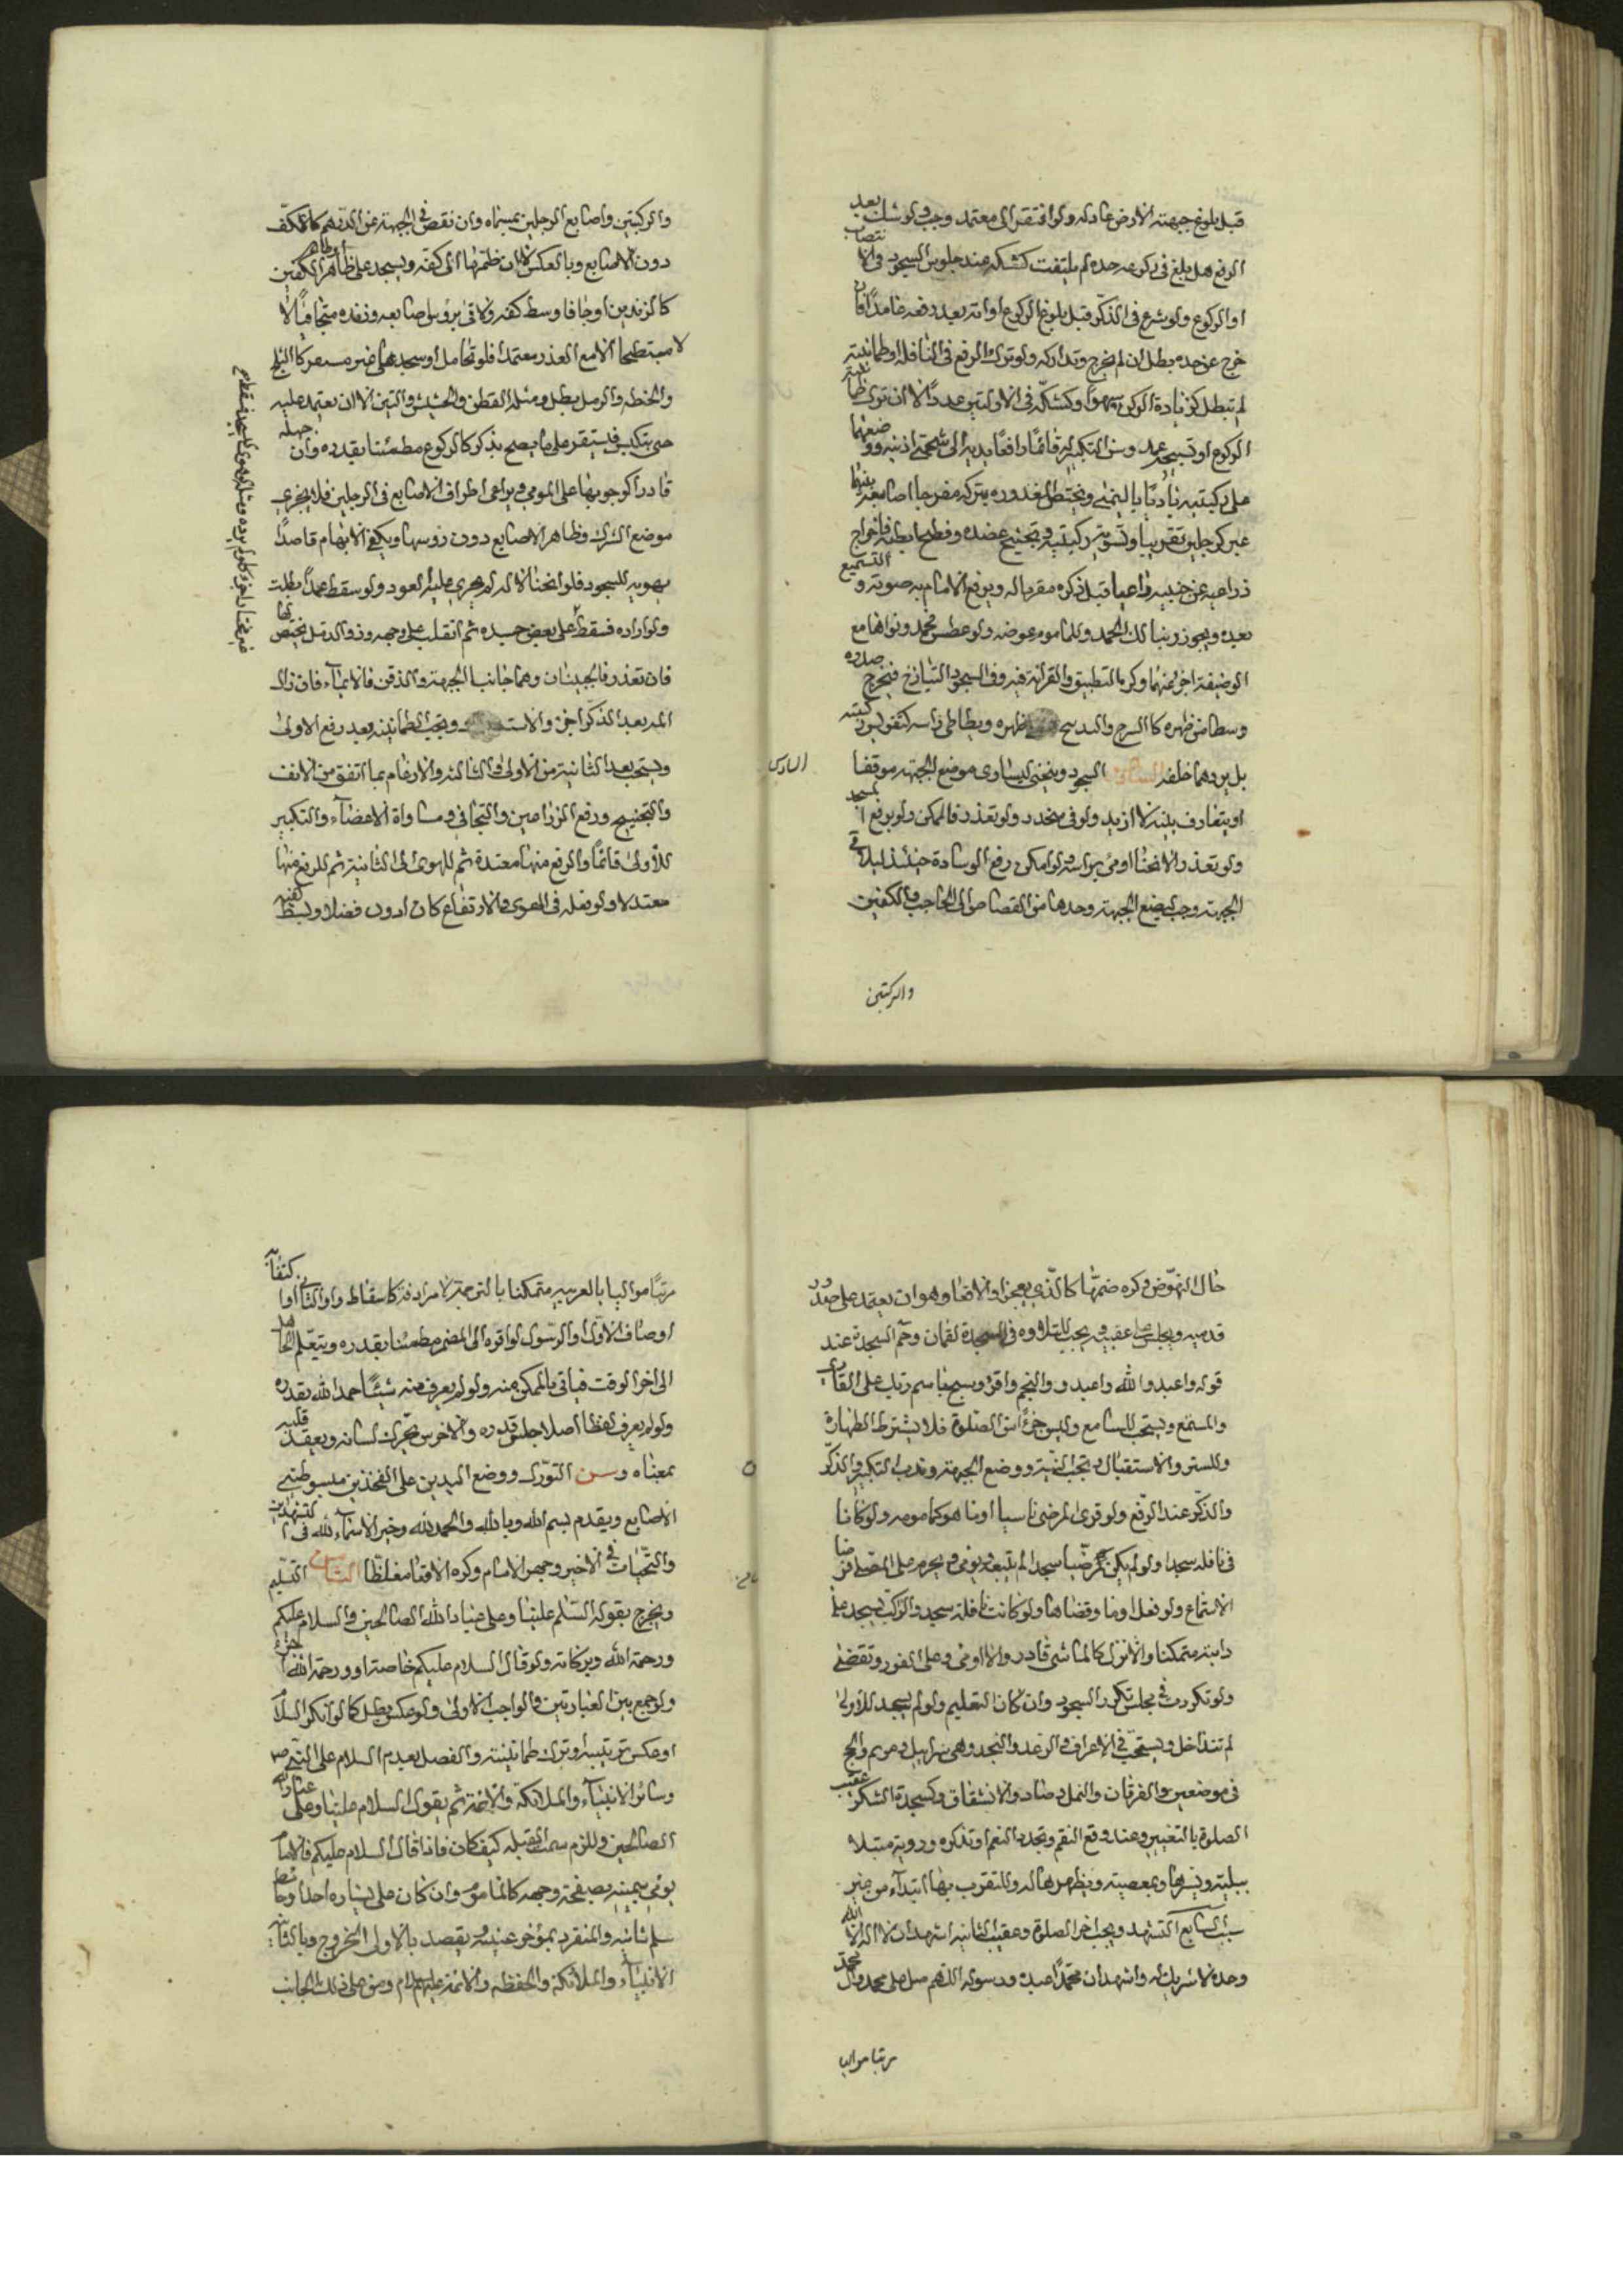 قبل بلوغ جبهته الارض عاد له ولو افتقر الى معتمد وجب ولو شك بعد
الرفع هل بلغ في ركوعه حده لم يلتفت كشكه عند جلوس السجود في الانتصاب
او الركوع ولو شرع في الذكر قبل بلوغ الركوع او اتمه بعد رفعه عامدا فان
خرج عن حده بطل ان لم يخرج وتداركه ولو ترك الرفع في النافلة وطمانينته
لم تبطل كزيادة الركن سهوا وكشكه في الاوليين عددا الا ان ترك طمانينة
الركوع او تسبيحه عمدا وسن التكبير له قائما رافعا يديه الى شحمتي اذنيه ووضعهما
على ركبتيه بادئا باليمنى ويختص المعذوره بتركه مفرجا اصابعه بينهما
شبر كرجلين تقريبا وتسوية ركبتيه وتجنيح عضده وفتح ابطيه واخراج
ذراعيه عن جنبيه داعيا قبل ذكره مقرباله ويرفع الامام به صوته والتسميع
بعده ويجوز ربنا لك الحمد وللماموم عوضه ولو عطس فحمد ونواهما مع
الوضيفة اجزا عنهما وكره التطبيق والقرائة فيه وفي السجود التبازخ فيخرج صدره
وسطا من ظهره كالسرج والتدبيح ظهره ويطاطي راسه كتقويس ركبتيه
بل يردهما خلفه السادس السجود وينحني ليساوى موضع الجبهة موقفا
السادس
او يتفاوت بلبنة لا ازيد ولو في منحدر ولو تعذر فالممكن ولو برفع المسجد
ولو تعذر الانحنا اومى براسه ولو امكن رفع الوسادة حينئذ ليلاقي
الجبهة وجب ليضع الجبهة وحدها من القصاص الى الحاجب والكفين
والركبتين
والركبتين واصابع الرجلين بمسماه وان نقص في الجبهة عن الدرهم كالكف
دون الاصابع وبالعكس لا ان ضمها الى كفه ويسجد على ظاهر الكفين
كالزندين او جافا وسط كفه ولاقى بروس اصابعه وزنده متجافيا لا
لا منبطحا الا مع العذر معتمدا فلو تحامل او سجد على غير مستقر كالثلج
والحنطة والرمل بطل ومثله القطن والحشيش والتبن الا ان يعتمد عليه
حتى يتكبس فليستقر على ما يصح بذكر كالركوع مطمئنا بقدره وان جهله
قادرا كوجوبها على المومي ويراعى اطراف الاصابع في الرجلين فلا يجزي
موضع الشرك وظاهر الاصابع دون روسها ويكفي الابهام قاصدا
بهويه للسجود فلو انحنا لا له لم يجزي عليه العود ولو سقط عمدا بطلت
ولو اراده فسقط على بعض جسده ثم انقلب على وجهه وذو الدمل يختص بها
فان تعذر فالجبينان وهما جانبا الجبهة والذقن فالايماء فان زال
الم بعد الذكر اجزا والا وتجب الطمانينة بعد رفع الاولى
ويستحب بعد الثانية من الاولى والثالثة والارغام بما اتفق من الانف
والتجنيح ورفع الذراعين والتجافي ومساواة الاعضاء والتكبير
للاولى قائما والرفع منها معتدلا ثم للهوى الى الثانية ثم للرفع منها
معتدلا ولو فعله في الهوي والارتفاع كان ادون فضلا وبسط كفيه
حال النهوض وكره ضمها كالذي يعجن والاقعا وهو ان يعتمد على صدور
قدميه ويجلس على عقبيه ويجب للتلاوة في السجدة لقمان وحم السجدة عند
قوله واعبدوا الله واعبدوه والنجم واقرا وبسبح باسم ربك على القارى
والمستمع ويستحب للسامع وليس جزءا من الصلوة فلا يشترط الطهارة
والستر والاستقبال وتجب النية ووضع الجبهة وندب التكبير والذكر
والذكر عند الرفع ولو قرى المرضى ناسيا اوما هو كماموم ولو كانا
في نافلة سجدا ولو لم يكن مرضيا سجدا لم يتبعه ويومي ويحرم على المصلي فرضا
الاستماع ولو فعل اوما وقضاها ولو كانت نافلة سجد والراكب يسجد على
دابته متمكنا والا نزل كالماشي قادر والا اومى وعلى الفور وتقضى
ولو تكررت في مجلس تكرر السجود وان كان التعليم ولو لم يسجد للاولى
لم تتداخل ويستحب في الاعراف والرعد والنحل وبني اسرائيل ومريم والحج
في موضعين والفرقان والنمل وصاد والانشقاق وكسجدة الشكر عقيب
الصلوة بالتعفير وعند دفع النقم وتجدد النعم او تذكره ورؤية مبتلا
ببلية ويسرها وبمعصية ويظهرها له والتقرب بها ابتداء من غير
سبب السابع التشهد ويجب اخر الصلوة وعقيب الثانية اشهد ان لا اله الا الله
وحده لا شريك له واشهد ان محمدا عبده ورسوله اللهم صل على محمد وال محمد
مرتبا مواليا
مرتبا مواليا بالعربية متمكنا بالترجمة لا مرادفة كاسقاط واو الثاني اكتفاء
او مضاف الال او الرسول لو اقره الى المضمر مطمئنا بقدره ويتعلم الجاهل
الى اخر الوقت فياتي بالممكن منه ولو لم يعرف منه شيئا حمد الله بقدره
ولو لم يعرف لفظا اصلا جلس قدره والاخرس تحرك لسانه ويعقد قلبه
بمعناه وسن التورك ووضع اليدين على الفخذين مبسوطتي
الاصابع ويقدم بسم الله وبالله والحمد لله وخير الاسماء لله في التشهدين
والتحيات في الاخير وجهر الامام وكره الاقعا مغلظا الثامن التسليم
ويخرج بقوله السلام علينا وعلى عباد الله الصالحين والسلام عليكم
ورحمة الله وبركاته ولو قال السلام عليكم خاصة او ورحمة الله اجزء
ولو جمع بين العبارتين فالواجب الاولى ولو عكس بطل كما لو انكر السلام
او عكس ترتيبه او ترك طمانينته والفضل بعدم السلام على النبي ص
وسائر الانبياء والملائكة والائمة ثم يقول السلام علينا وعلى عباد الله
الصالحين وللزم سمت القبلة كيف كان فاذا قال السلام عليكم فالامام
يومي بيمينه بصفحة وجهه كالماموم وان كان على يساره احد او حائط
سلم ثانية والمنفرد بمؤخر عينيه ويقصد بالاولى الخروج وبالثانية
الانبياء والملائكة والحفظة والائمة عليهم السلام ومن على ذلك الجانب